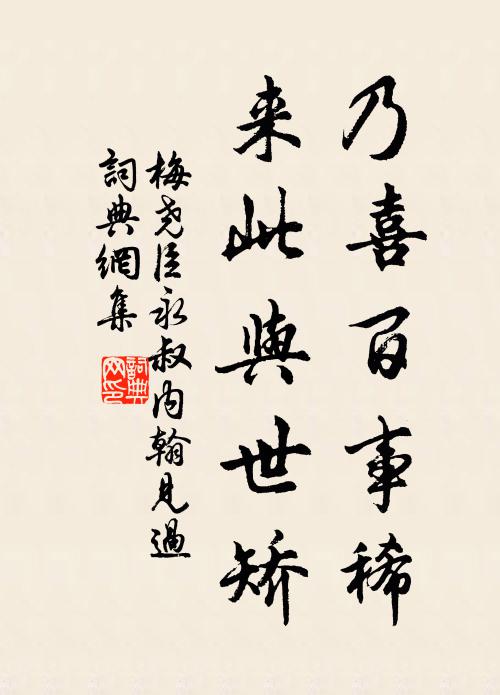 乃喜百事稀
来此與世矫
梅尧臣永叔内翰見過
詞典網集
詞典
网印